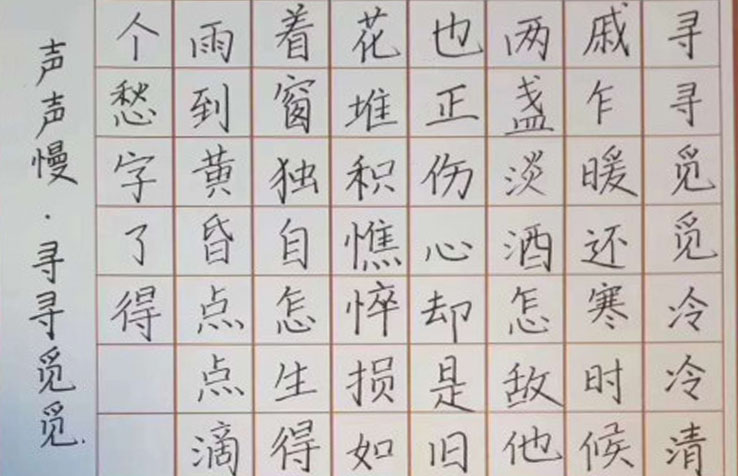 寻寻觅觅冷冷清
戚乍暖还寒时候
两盏淡酒怎敌他
也正伤心却是旧
花堆积憔悴损如
着窗独自怎生得
雨到黄昏点点滴
个愁字了得
声声慢·寻寻觅觅